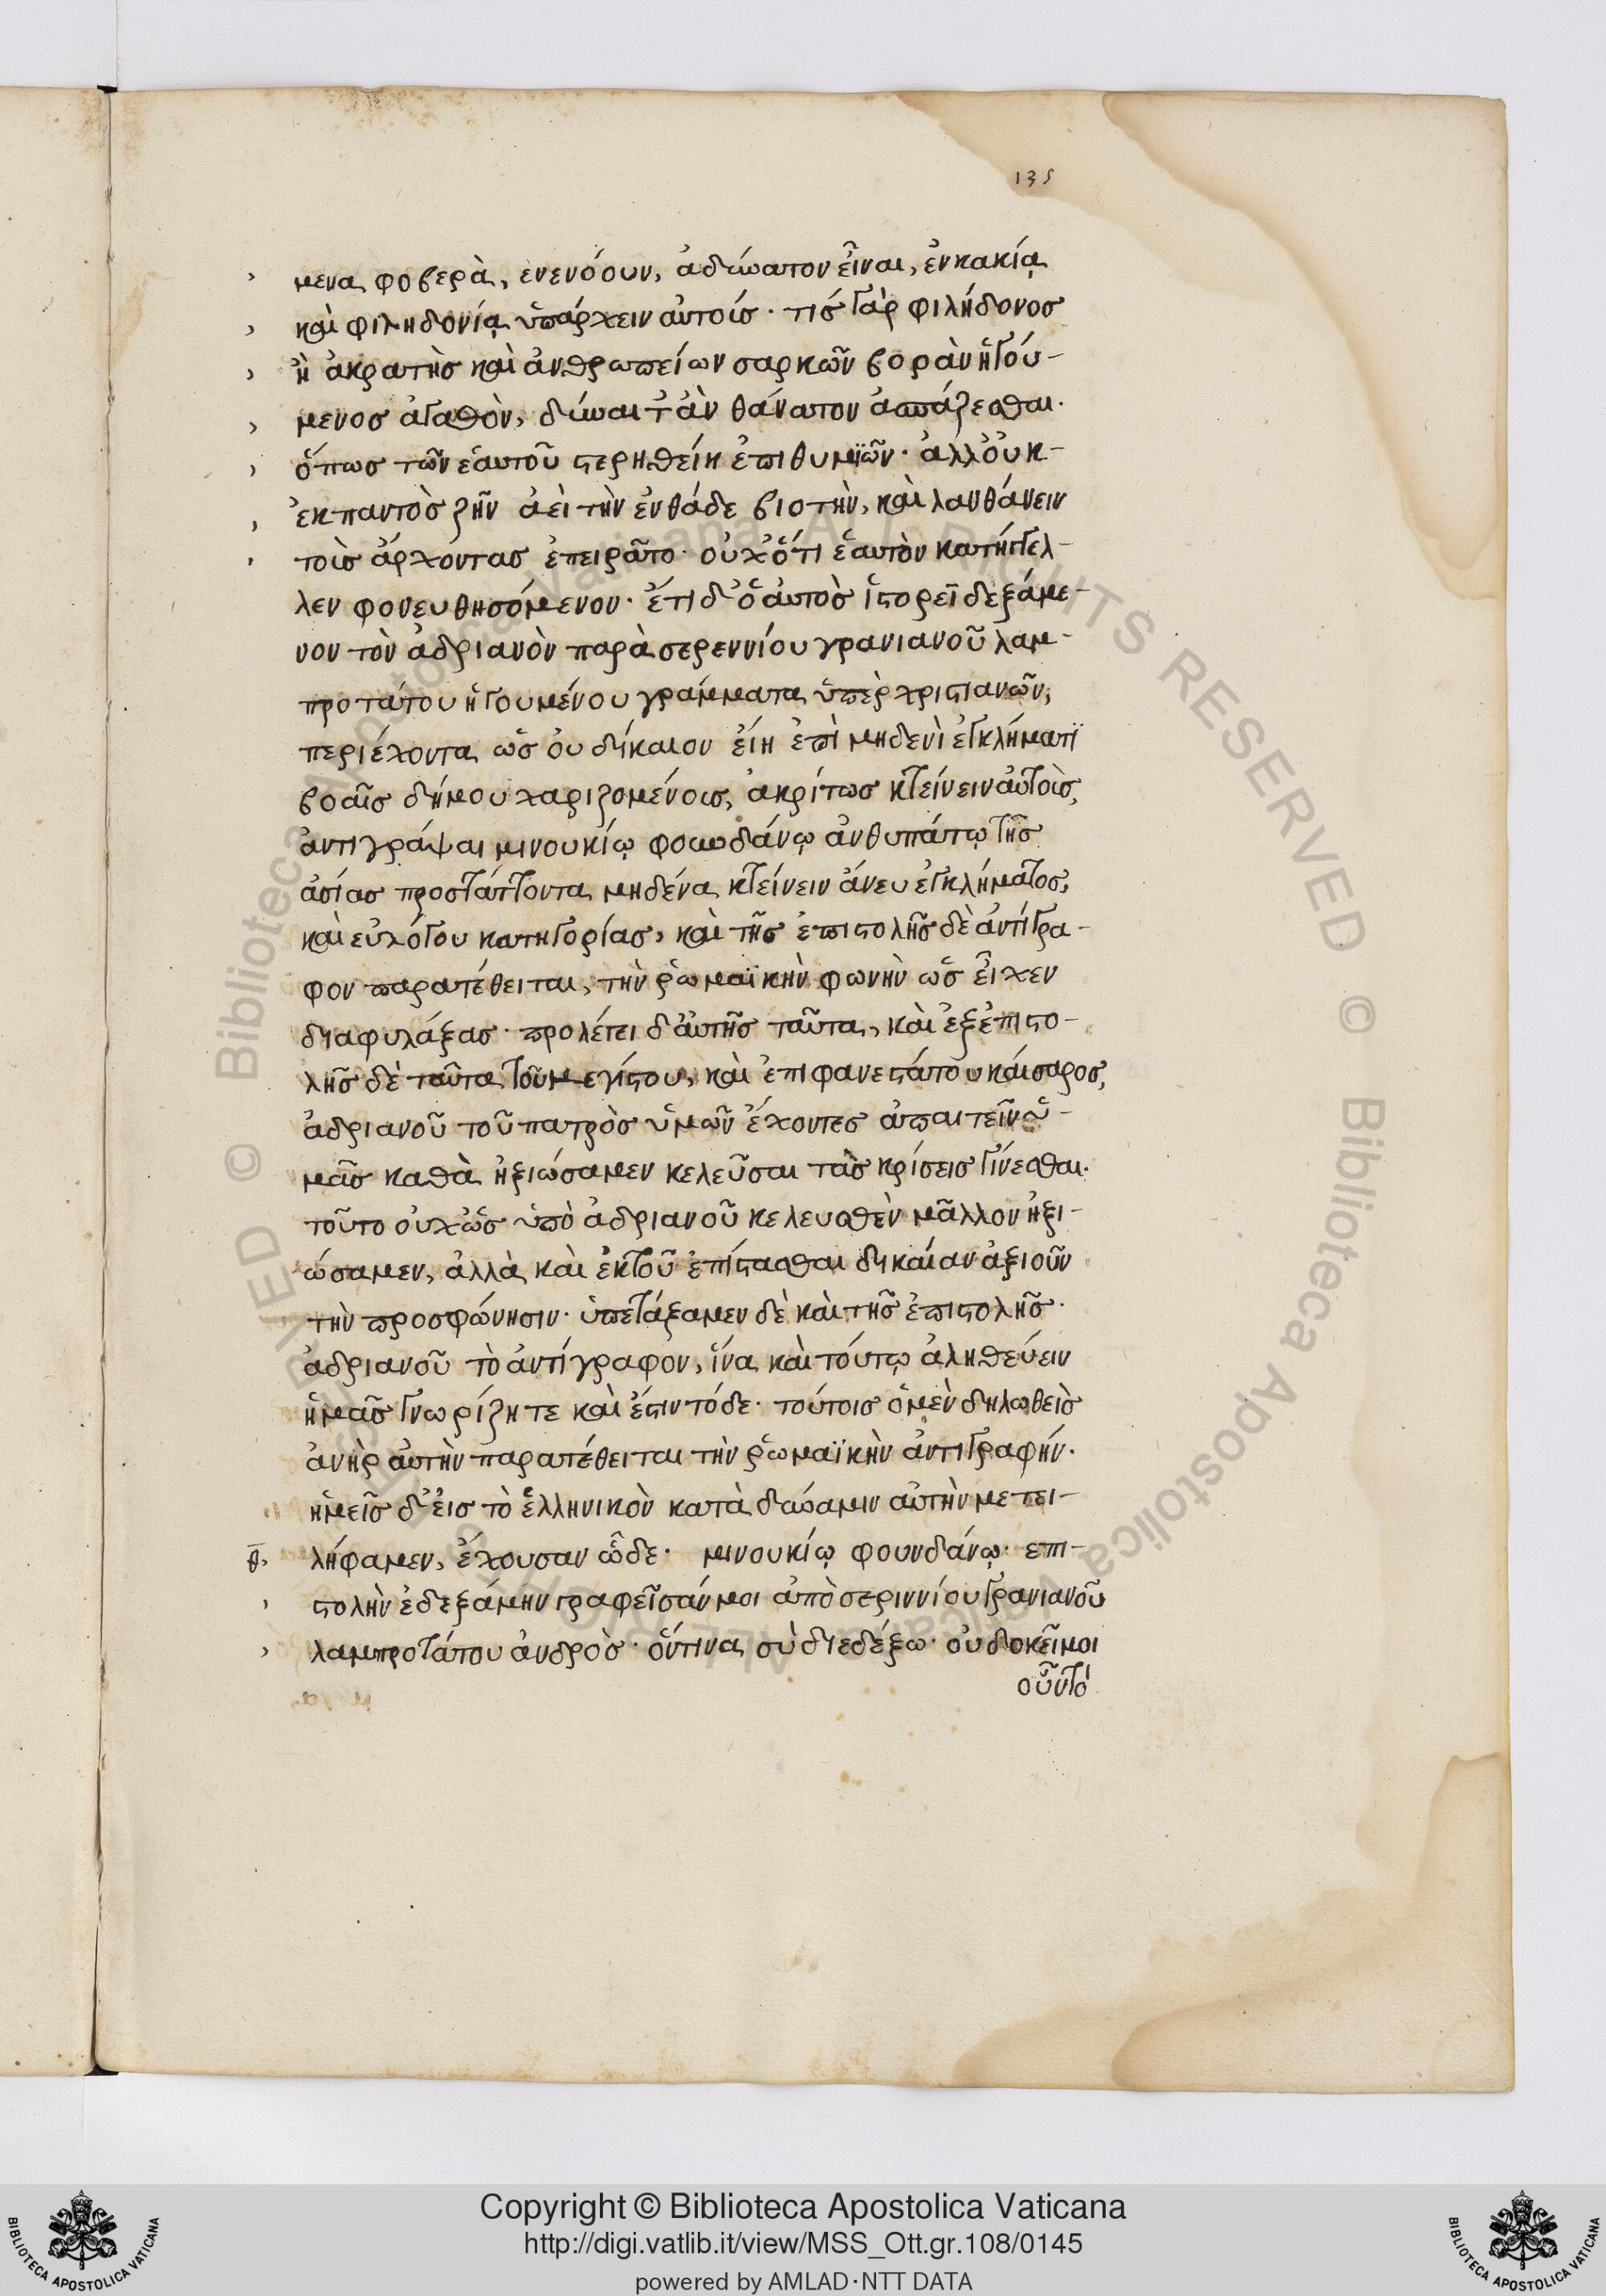 135
μενα φοβερὰ, ενενόουν, ἀδύνατον εἶναι, ἐν κακίᾳ
καὶ φιληδονίᾳ ὑπάρχειν αὐτοίσ· τισ γὰρ φιλήδονοσ
ἢ ἀκρατὴσ καὶ ἀνθρωπείων σαρκῶν βορὰν ἡγού-
μενοσ ἀγαθὸν, δύναιτ' ἀν θάνατον ἀσπάζεσθαι.
ὅπωσ τῶν ἑαυτοῦ στερηθείη ἐπιθυμϊῶν· ἀλλ' ὀυκ-
ἐκπαντὸσ ζῆν ἀεὶ τὴν ἐνθάδε βιοτὴν, καὶ λανθάνειν
τοὺσ ἄρχοντασ ἐπειρᾶτο· οὐχ' ὅτι ἑαυτὸν κατήγγελ-
λεν φονευθησόμενον· ἔτι δ' ὁ ἀυτὸσ ἱστορεῖ δεξάμε-
νον τὸν ἀδριανὸν παρὰ σερεννίου γρανιανοῦ λαμ-
προτάτου ἡγουμένου γράμματα ὑπὲρ χριστιανῶν,
περιέχοντα ὡσ ὀυ δίκαιον ἐίη ἐπὶ μηδενὶ ἐγκλήματϊ
βοαῖσ δήμου χαριζομένοισ, ἀκρίτωσ κτείνειν αὐτοὺσ,
ἀντιγράψαι μινουκίῳ φουνδάνῳ ἀνθυπάτῳ τῆσ
ἀσίασ προστάττοντα μηδένα κτείνειν ἄνευ ἐγκλήματοσ,
καὶ εὐλόγου κατηγορίασ, καὶ τῆσ ἐπιστολῆσ δὲ ἀντίγρα-
φον παρατέθειται, τὴν ῥωμαϊκὴν φωνὴν ὡσ εἶχεν
διαφυλάξασ· προλέγει δ' ἀυτῆσ ταῦτα, καὶ ἐξ ἐπιστο-
λῆσ δὲ ταῦτα τοῦ μεγίστου, καὶ ἐπιφανεστάτου κάισαροσ,
ἀδριανοῦ τοῦ πατρὸσ ὑμῶν ἔχοντεσ ἀπαιτεῖν ὑ-
μᾶσ καθὰ ἠξιώσαμεν κελεῦσαι τὰσ κρίσεισ γίνεσθαι.
τοῦτο οὐχ' ὡσ ὑπὸ ἀδριανοῦ κελευσθὲν μᾶλλον ἠξι-
ώσαμεν, ἀλλὰ καὶ ἐκτοῦ ἐπίστασθαι δικαίαν ἀξιοῦν
τὴν προσφώνησιν· ὑπετάξαμεν δὲ καὶ τῆσ ἐπιστολῆσ·
ἀδριανοῦ τὸ ἀντίγραφον, ἵνα καὶ τούτῳ ἀληθεύειν
ἡμᾶσ γνωρίζητε καὶ ἔστιν τόδε· τούτοισ ὁ μὲν δηλωθεὶσ
ἀνὴρ ἀυτὴν παρατέθειται τὴν ῥωμαϊκὴν ἀντιγραφήν.
ἡμεῖσ δ' ἐισ τὸ ἑλληνικὸν κατὰ δύναμιν αὐτὴν μετει-
θ, λήφαμεν, ἔχουσαν ὧδε· μινουκίῳ φουνδάνῳ· επι-
στολὴν ἐδεξάμην γραφεῖσάν μοι ἀπὸ σεριννίου γρανιανοῦ
λαμπροτάτου ἀνδρὸσ· ὅντινα σὺ διεδέξω· οὐ δοκεῖ μοι
οὖν τὸ